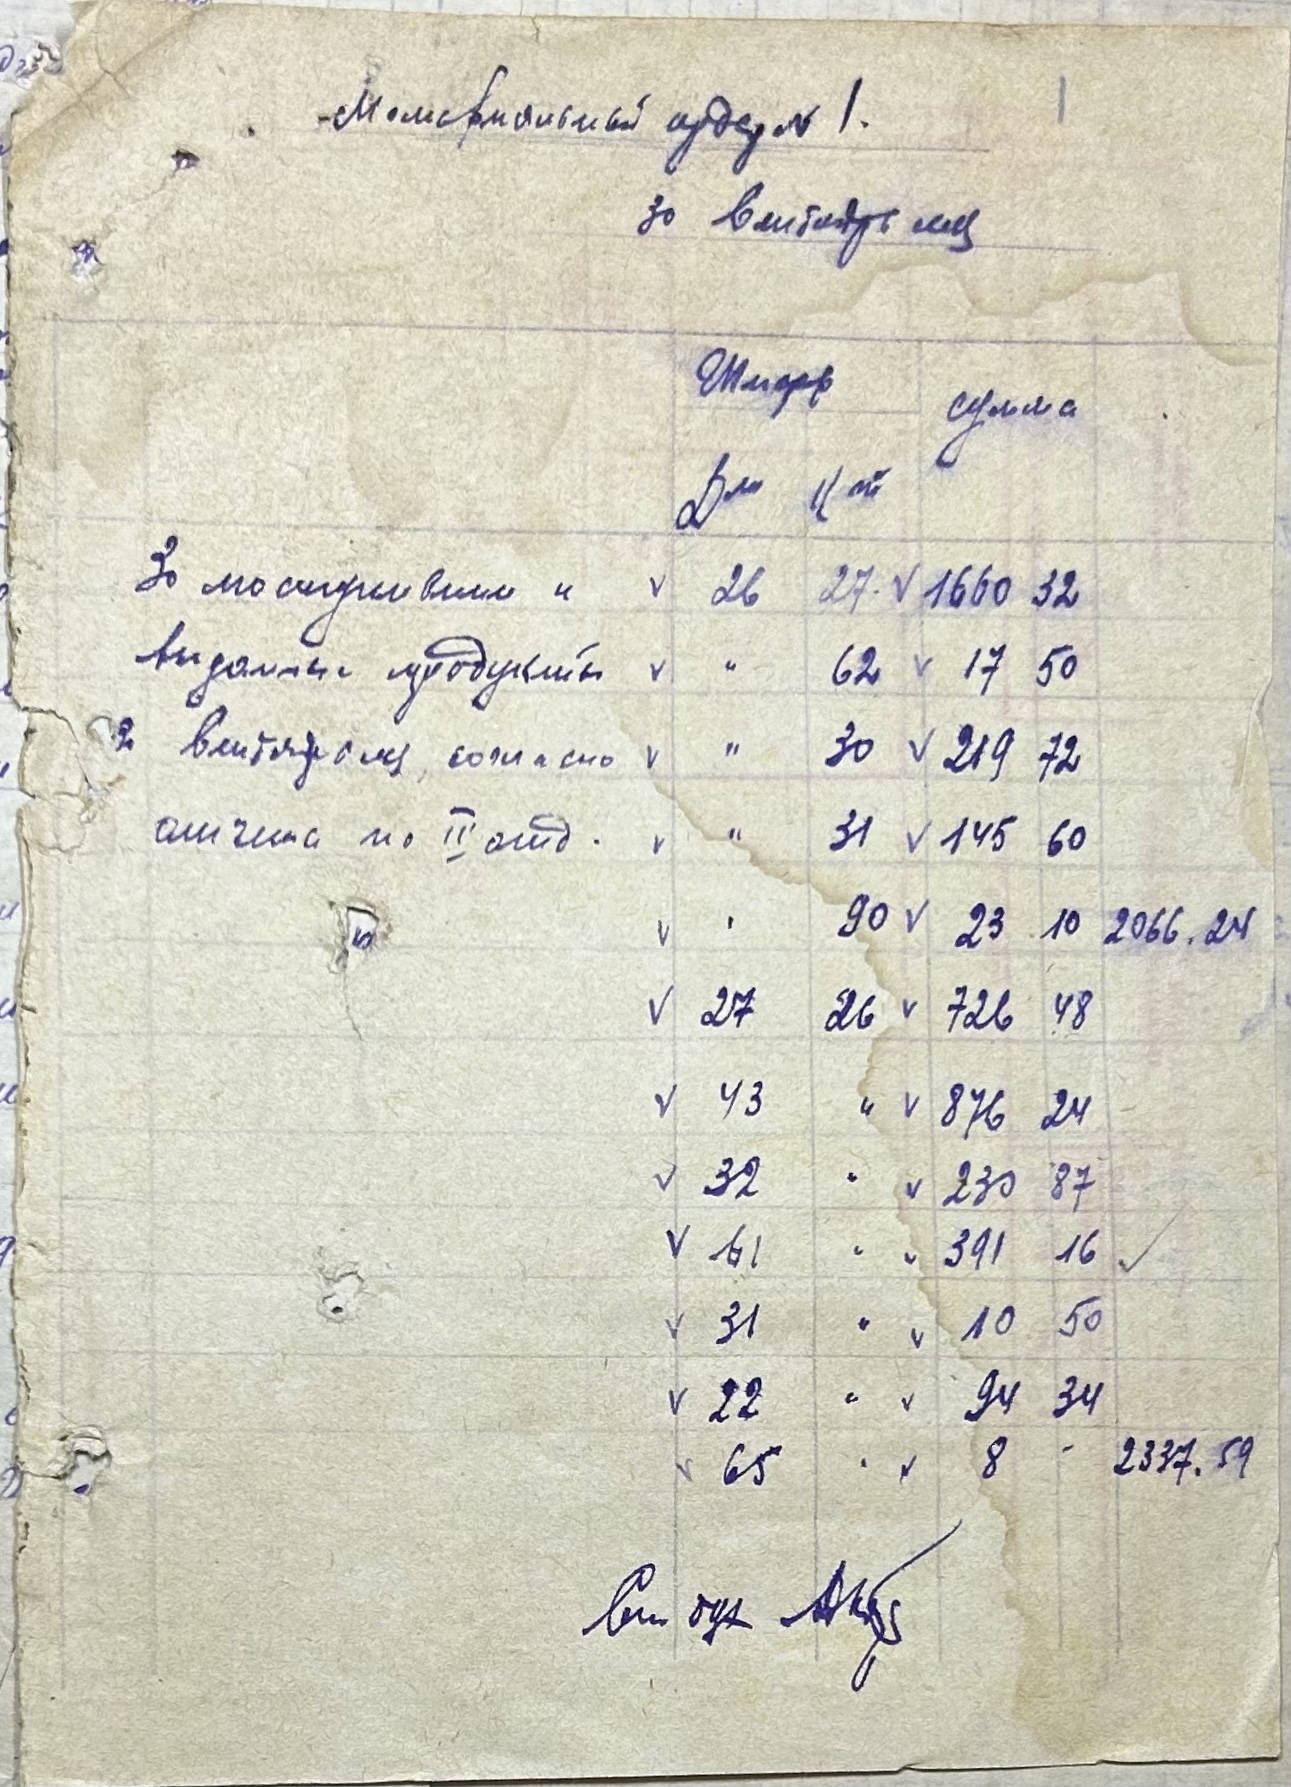 Мемориальный ордер № 1.
За сентябрь м-ц
Шифр сумма
Д-т К-т
За поступившие и ✓ 26 27. ✓ 1660 32
выданные продукты ✓ " 62 ✓ 17 50
в сентябре м-ц, согласно ✓ " 30 ✓ 219 72
отчета по II отд. ✓ " 31 ✓ 145 60
✓ " 90 ✓ 23 10 2066.24
✓ 27 26 ✓ 726 48
✓ 43 " ✓ 876 24
✓ 32 " ✓ 230 87
✓ 61 " ✓ 391 16 ✓
✓ 31 " ✓ 10 50
✓ 22 " ✓ 94 34
✓ 65 " ✓ 8 - 2337.59
Ст бух